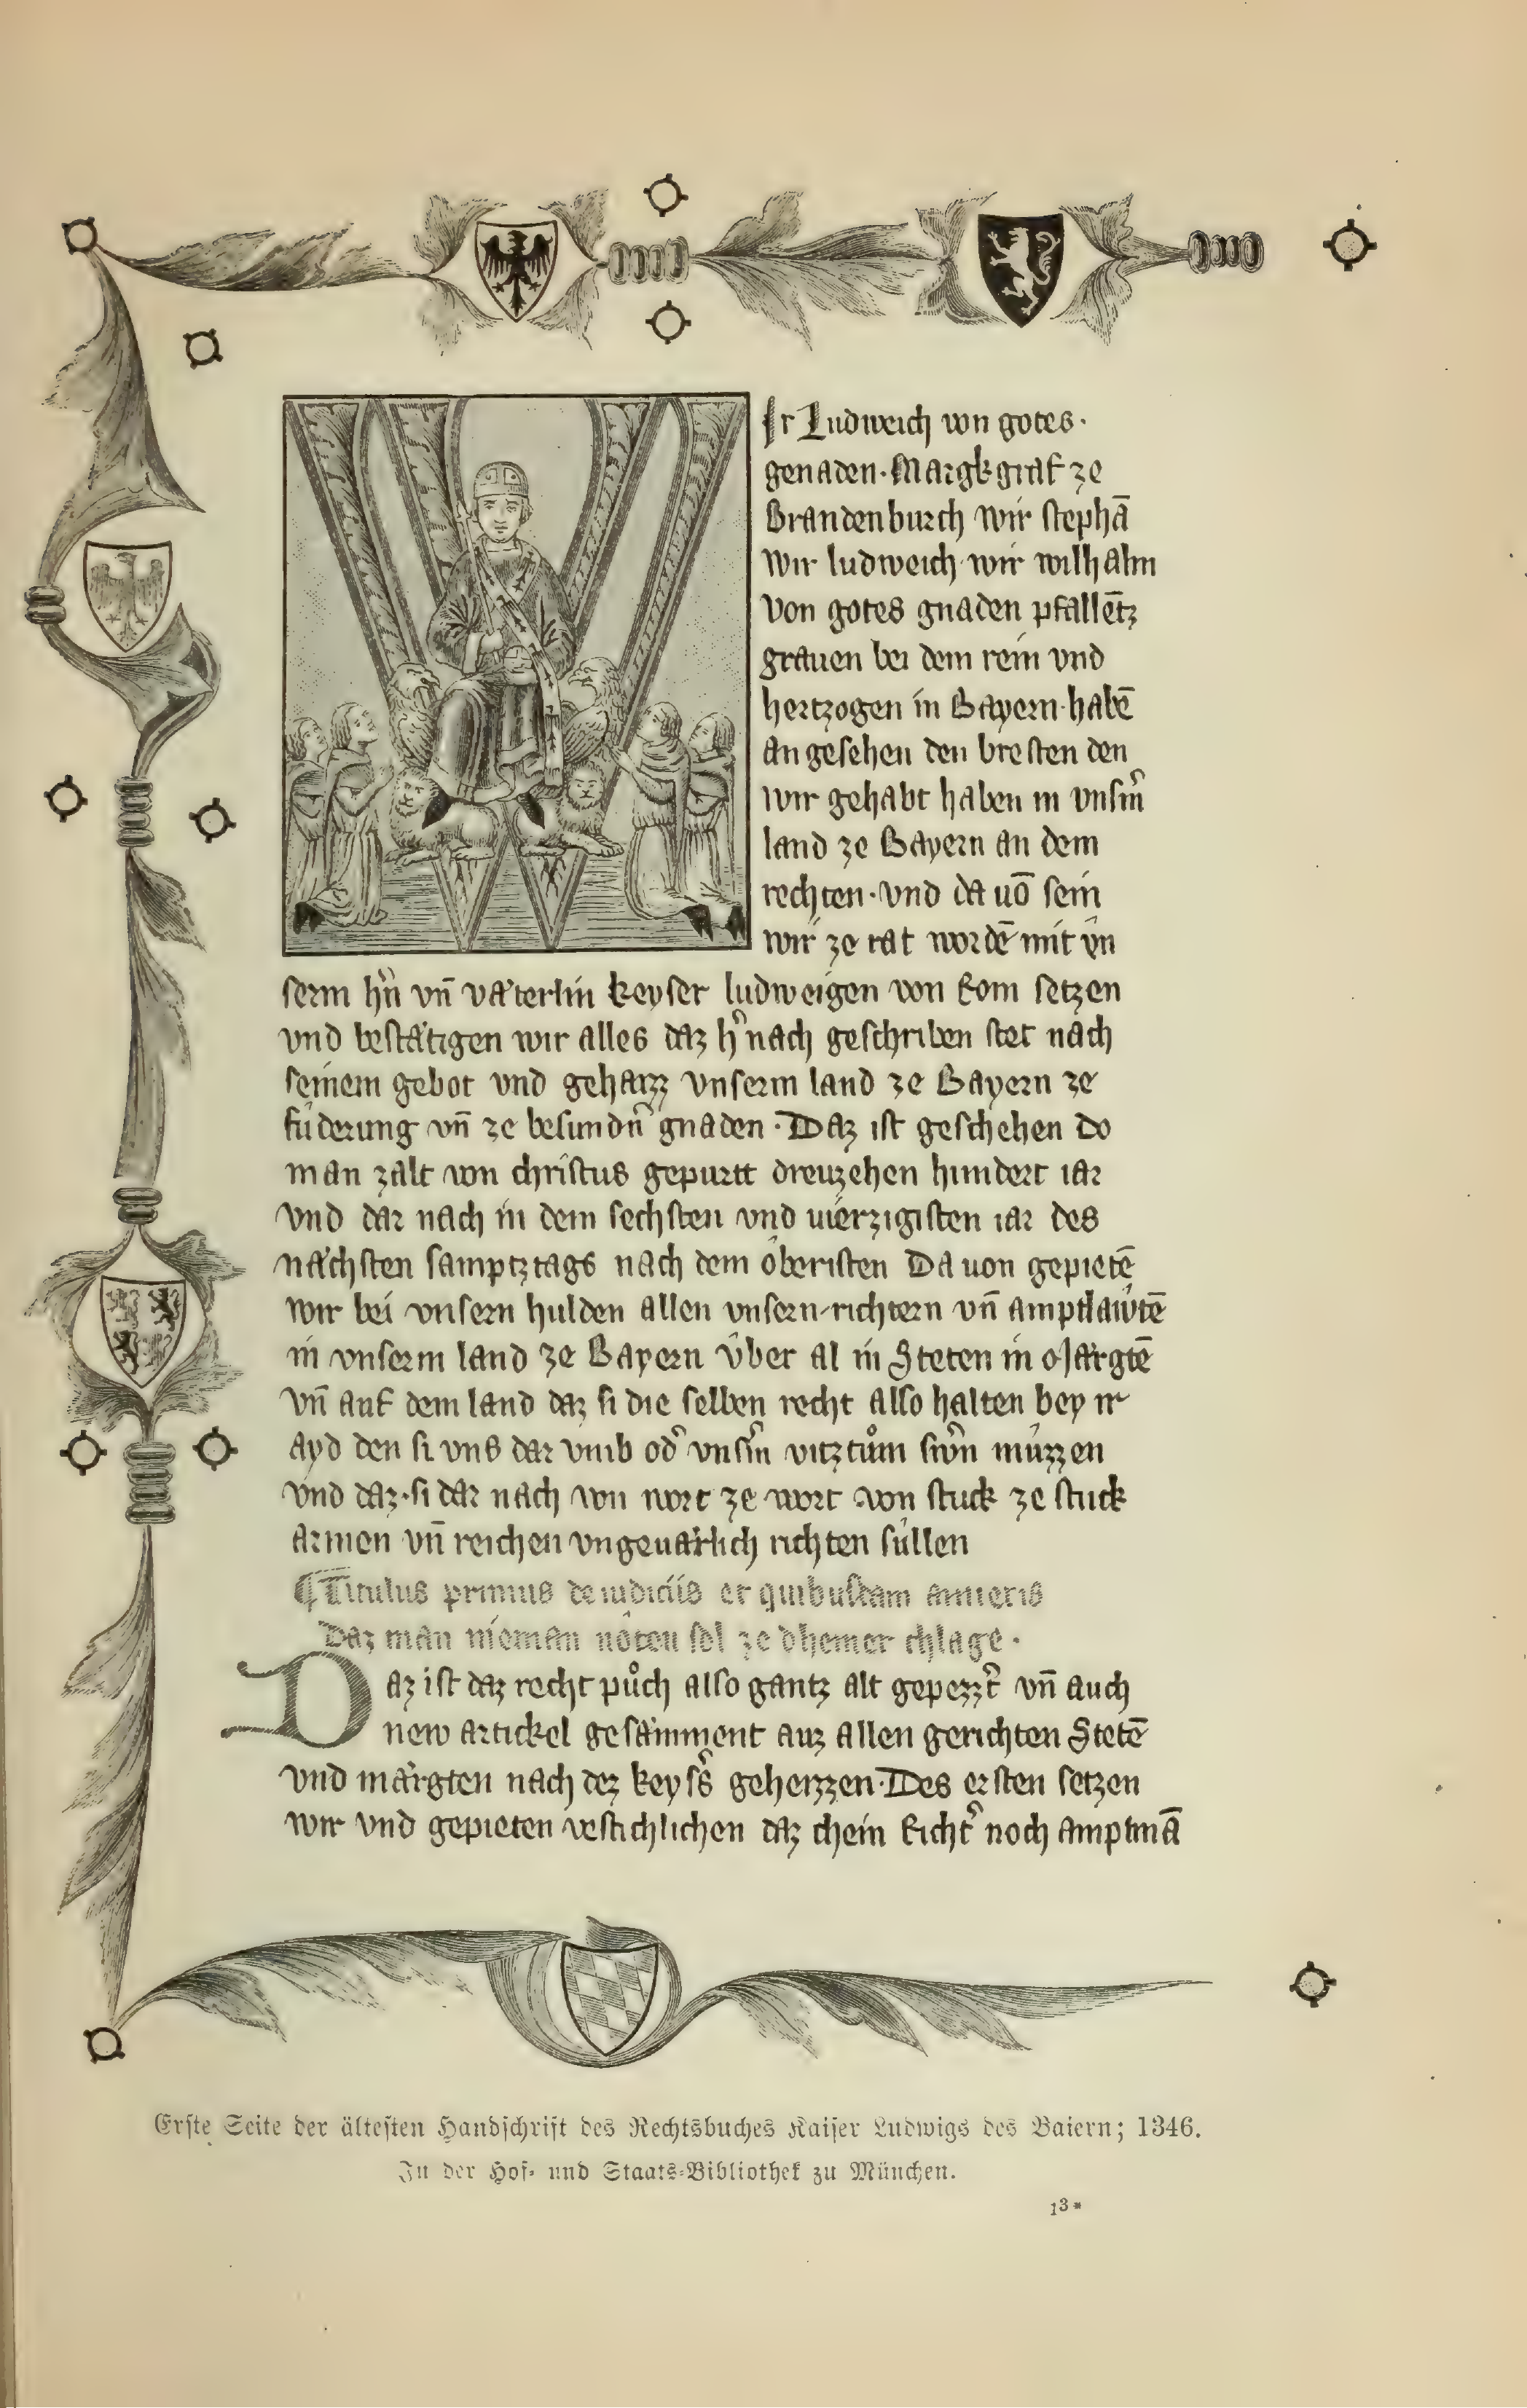 Ir Ludweich von gotes·
genaden·Margkgraf ze
Brandenburch wir stephā
wir ludweich·wir wilhalm
von gotes gnaden pfallētz
grauen bei dem rein vnd
hertzogen in Bayern·habē
an gesehen den bresten den
wir gehabt haben in vnsm̄
land ze Bayern an dem
rechten·vnd da uō sein
wir ze rat wordē mit vn
serm hn̄ vn̄ väterlin keyser ludweigen von Rom setzen
vnd bestätigen wir alles daz h̄nach geschriben stet nach
seinem gebot vnd geharzz vnserm land ze Bayern ze
fuderung vn̄ ze besundn̄ gnaden·Daz ist geschehen do
man zalt von christus gepurtt dreuzehen hundert iar
vnd dar nach in dem sechsten vnd uierzigisten iar des
nächsten samptztags nach dem obersten Da uon gepietē
wir bei vnsern hulden allen vnsern richtern vn̄ amptlawtē
in vnserm land ze Bayern über al in Steten in Märgtē
vn̄ auf dem land daz si die selben recht also halten bey ir
ayd den si vns dar vmb od̄ vnsm̄ vitztům swn̄ müzzen
vnd daz·si dar nach von wort ze wort von stuck ze stuck
armen vn̄ reichen vngeuärlich richten süllen
¶Titulus primus de iudiciis et quibusdam
Daz man nieman nöten sol ze dheiner chlage·
Daz ist daz recht půch also gantz alt gepezzt̄ vn̄ auch
new artickel gesamment auz allen gerichten Stetē
vnd märgten nach dez keyss̄ geherzzen·Des ersten setzen
wir vnd gepieten vestichlichen daz chein Richt̄ noch amptmā
Erste Seite der ältesten Handschrift des Rechtsbuches Kaiser Ludwigs des Baiern; 1346.
In der Hof- und Staats-Bibliothek zu München.
13*